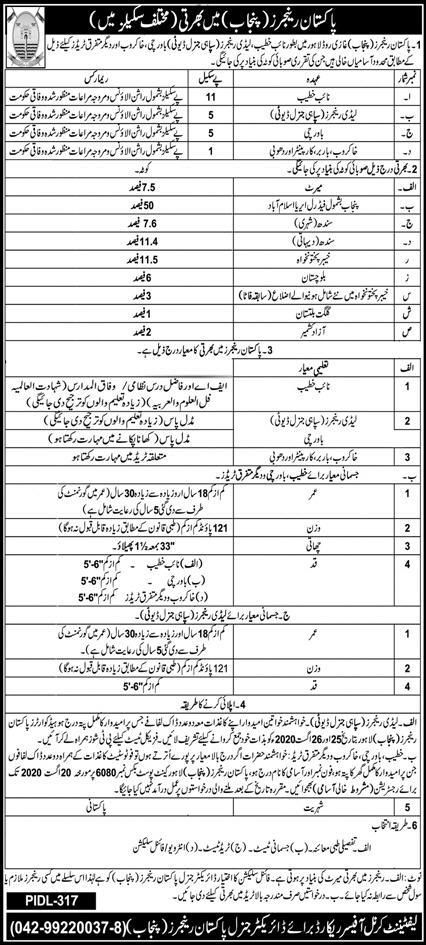 پاکستان رینجرز (پنجاب) میں بھرتی (مختلف سکیلز میں)
1۔ پاکستان رینجرز (پنجاب) غازی روڈ لاہور میں بطور نائب خطیب، لیڈی رینجرز (سپاہی جنرل ڈیوٹی)، باورچی، خاکروب اور دیگر متفرق ٹریڈز کیلئے ذیل
کے مطابق محدود آسامیاں خالی ہیں جن کی تقرری صوبائی کوٹہ کی بنیاد پر کی جائیگی۔
نمبر شمار عہدہ پے سکیل ریمارکس
ا۔ نائب خطیب 11 پے سکیل بشمول راشن الاؤنس و مروجہ مراعات منظور شدہ وفاقی حکومت
ب۔ لیڈی رینجرز (سپاہی جنرل ڈیوٹی) 5 پے سکیل بشمول راشن الاؤنس و مروجہ مراعات منظور شدہ وفاقی حکومت
ج۔ باورچی 5 پے سکیل بشمول راشن الاؤنس و مروجہ مراعات منظور شدہ وفاقی حکومت
د۔ خاکروب، باربر، کارپینٹر اور دھوبی 1 پے سکیل بشمول راشن الاؤنس و مروجہ مراعات منظور شدہ وفاقی حکومت
2۔ بھرتی درج ذیل صوبائی کوٹہ کی بنیاد پر کی جائیگی۔ کوٹہ۔
الف۔ میرٹ 7.5 فیصد
ب۔ پنجاب بشمول فیڈرل ایریا اسلام آباد 50 فیصد
ج۔ سندھ (شہری) 7.6 فیصد
د۔ سندھ (دیہاتی) 11.4 فیصد
ر۔ خیبر پختونخواہ 11.5 فیصد
ز۔ بلوچستان 6 فیصد
س۔ خیبر پختونخواہ میں نئے شامل ہونیوالے اضلاع (سابقہ فاٹا) 3 فیصد
ش۔ گلگت بلتستان 1 فیصد
ص۔ آزاد کشمیر 2 فیصد
3۔ پاکستان رینجرز میں بھرتی کا معیار درج ذیل ہے۔
الف تعلیمی معیار
1 نائب خطیب ایف اے اور فاضل درس نظامی / وفاق المدارس (شہادت العالمیہ
فی العلوم والعربیہ) (زیادہ تعلیم والوں کو ترجیح دی جائیگی)
2 لیڈی رینجرز (سپاہی جنرل ڈیوٹی) مڈل پاس (زیادہ تعلیم والوں کو ترجیح دی جائیگی)
باورچی مڈل پاس (کھانا پکانے میں مہارت رکھتا ہو)
3 خاکروب، باربر، کارپینٹر اور دھوبی متعلقہ ٹریڈ میں مہارت رکھتا ہو
ب۔ جسمانی معیار برائے خطیب، باورچی و دیگر متفرق ٹریڈز۔
1 عمر کم از کم 18 سال اور زیادہ سے زیادہ 30 سال (عمر میں گورنمنٹ کی
طرف سے دی گئی 5 سال کی رعایت شامل ہے)
2 وزن 121 پاؤنڈ کم از کم (طبی قانون کے مطابق زیادہ قابل قبول نہ ہوگا)
3 چھاتی 33" بمعہ 1½ پھیلاؤ۔
4 قد (الف) نائب خطیب ۔ کم از کم 5'-6"
(ب) باورچی ۔ کم از کم 5'-6"
(د) خاکروب و دیگر متفرق ٹریڈز کم از کم 5'-6"
ج۔ جسمانی معیار برائے لیڈی رینجرز (سپاہی جنرل ڈیوٹی)۔
1 عمر کم از کم 18 سال اور زیادہ سے زیادہ 30 سال (عمر میں گورنمنٹ کی
طرف سے دی گئی 5 سال کی رعایت شامل ہے۔)
2 وزن 121 پاؤنڈ کم از کم (طبی قانون کے مطابق زیادہ قابل قبول نہ ہوگا)
4 قد کم از کم 5'-6"
4۔ اپلائی کرنے کا طریقہ
الف۔ لیڈی رینجرز (سپاہی جنرل ڈیوٹی)۔ خواہشمند خواتین امیدوار اپنے کاغذات معہ دو عدد ڈاک لفافے جس پر امیدوار کا مکمل پتہ درج ہو ہیڈ کوارٹرز پاکستان
رینجرز (پنجاب) لاہور بتاریخ 25 اور 26 اگست 2020 کو بذات خود جمع کروانے کیلئے تشریف لائیں۔ فزیکل ٹیسٹ کیلئے پی ٹی شوز ہمراہ لے کر آئیں۔
ب۔ خطیب، باورچی، خاکروب و دیگر متفرق ٹریڈ: خواہشمند حضرات اگر درج بالا معیار پر پورے اُترتے ہوں تو فوٹوسٹیٹ کاغذات کے ہمراہ دو عدد ڈاک لفافوں
جن پر امیدوار کا مکمل گھر کا پتہ ہو، فون نمبر اور آسامی کا نام درج ہو، پاکستان رینجرز (پنجاب) لاہور کینٹ پوسٹ بکس نمبر 6080 پر مورخہ 20 اگست 2020 تک
برائے رجسٹریشن (مشروط خالی آسامی) بھجوائیں۔ مقررہ تاریخ کے بعد ملنے والی درخواستوں پر عمل درآمد نہیں کیا جائیگا۔
5 شہریت پاکستانی
6۔ طریقہ انتخاب
الف۔ تفصیلی طبی معائنہ۔ (ب) جسمانی ٹیسٹ۔ (ج) ٹریڈ ٹیسٹ۔ (د) انٹرویو / فائنل سلیکشن
نوٹ: رینجرز میں بھرتی میرٹ کی بنیاد پر ہوتی ہے۔ فائنل سلیکشن کا اختیار ڈائریکٹر جنرل پاکستان رینجرز (پنجاب) کو ہے لہٰذا اس سلسلے میں کسی رینجرز ملازم یا
سول شخص سے رابطہ نہ کیا جائے۔ ب۔ درخواستیں صرف مندرجہ بالا ٹریڈز کیلئے دی جائیں۔
PIDL-317
لیفٹیننٹ کرنل آفیسر ریکارڈ برائے ڈائریکٹر جنرل پاکستان رینجرز (پنجاب) (042-99220037-8)